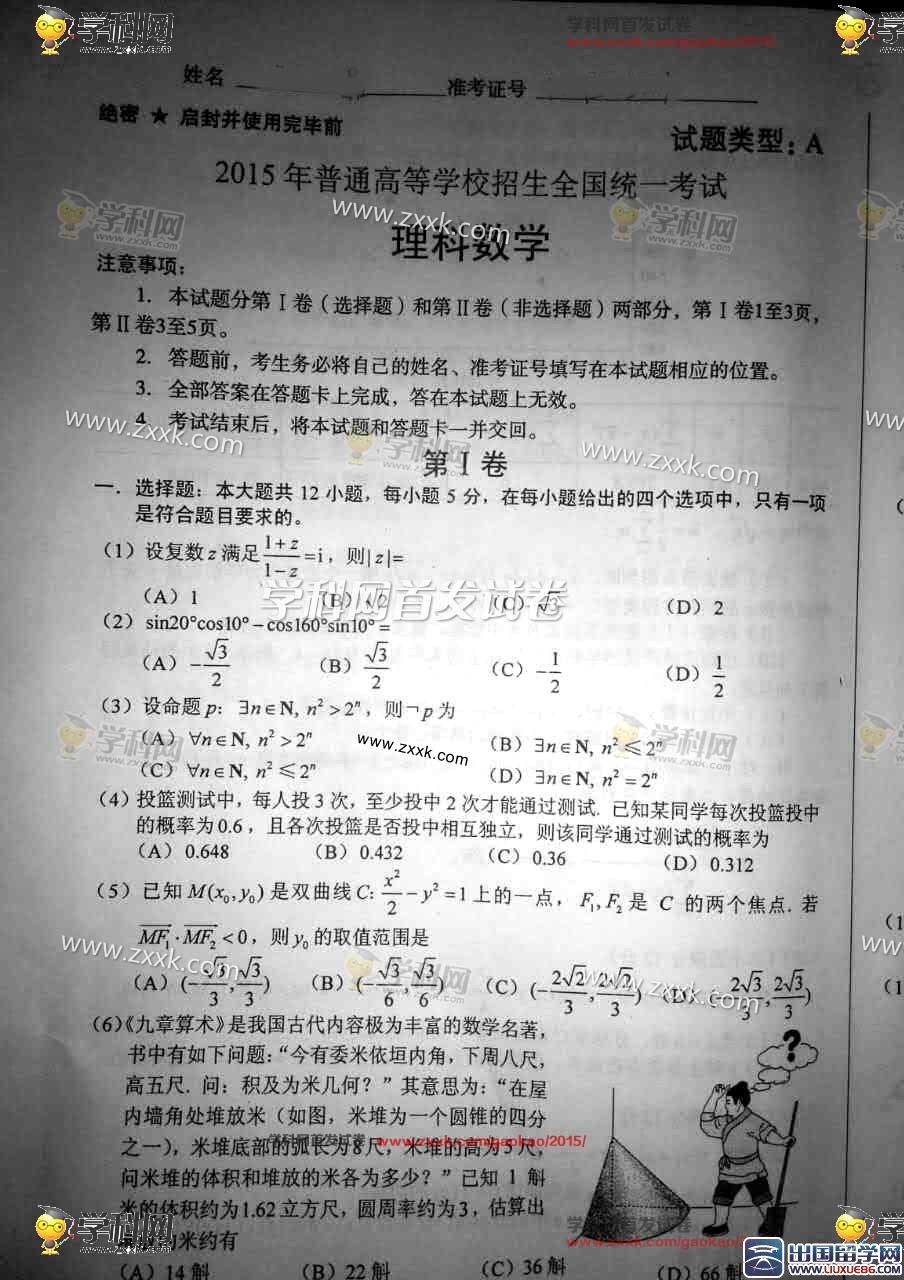 学科网
www.zxxk.com
学科网首发试卷
www.zxxk.com/gaokao/2015/
学科网
www.zxxk.com
姓名 准考证号
绝密 ★ 启封并使用完毕前
试题类型：A
2015 年普通高等学校招生全国统一考试
www.zxxk.com
学科网
www.zxxk.com
学科网
www.zxxk.com
理科数学
注意事项：
1. 本试题分第 I 卷（选择题）和第 II 卷（非选择题）两部分，第 I 卷1至3页，
第 II 卷3至5页。
2. 答题前，考生务必将自己的姓名、准考证号填写在本试题相应的位置。
3. 全部答案在答题卡上完成，答在本试题上无效。
4. 考试结束后，将本试题和答题卡一并交回。
www.zxxk.com
学科网
www.zxxk.com
www.zxxk.com
第 I 卷
一. 选择题：本大题共 12 小题，每小题 5 分，在每小题给出的四个选项中，只有一项
是符合题目要求的。
(1) 设复数 z 满足 (1+z)/(1−z) =i，则|z|=
学科网首发试卷
(A) 1 (B) √2 (C) √3 (D) 2
(2) sin20°cos10°−cos160°sin10°=
(A) −√3/2 (B) √3/2 (C) −1/2 (D) 1/2
(3) 设命题 p：∃n∈N, n²>2ⁿ，则¬p 为
学科网
www.zxxk.com
学科网
www.zxxk.com
(A) ∀n∈N, n²>2ⁿ (B) ∃n∈N, n²≤2ⁿ
www.zxxk.com
(C) ∀n∈N, n²≤2ⁿ (D) ∃n∈N, n²=2ⁿ
(4) 投篮测试中，每人投 3 次，至少投中 2 次才能通过测试. 已知某同学每次投篮投中
的概率为0.6，且各次投篮是否投中相互独立，则该同学通过测试的概率为
(A) 0.648 (B) 0.432 (C) 0.36 (D) 0.312
(5) 已知 M(x₀,y₀) 是双曲线 C: x²/2−y²=1 上的一点，F₁,F₂ 是 C 的两个焦点. 若
MF₁·MF₂<0，则 y₀ 的取值范围是
www.zxxk.com
学科网
www.zxxk.com
www.zxxk.com
(A) (−√3/3, √3/3) (B) (−√3/6, √3/6) (C) (−2√2/3, 2√2/3) (D) (−2√3/3, 2√3/3)
(6)《九章算术》是我国古代内容极为丰富的数学名著，
书中有如下问题：“今有委米依垣内角，下周八尺，
高五尺. 问：积及为米几何？”其意思为：“在屋
内墙角处堆放米（如图，米堆为一个圆锥的四分
之一），米堆底部的弧长为8尺，米堆的高为5尺，
学科网首发试卷 www.zxxk.com/gaokao/2015/
问米堆的体积和堆放的米各为多少？”已知 1 斛
米的体积约为1.62立方尺，圆周率约为3，估算出
的米约有
?
学科网
www.zxxk.com
学科网
www.zxxk.com
学科网首发试卷
www.zxxk.com/gaokao/2015/
(A) 14 斛 (B) 22 斛 (C) 36 斛 (D) 66 斛
出国留学网
WWW.LIUXUE86.COM